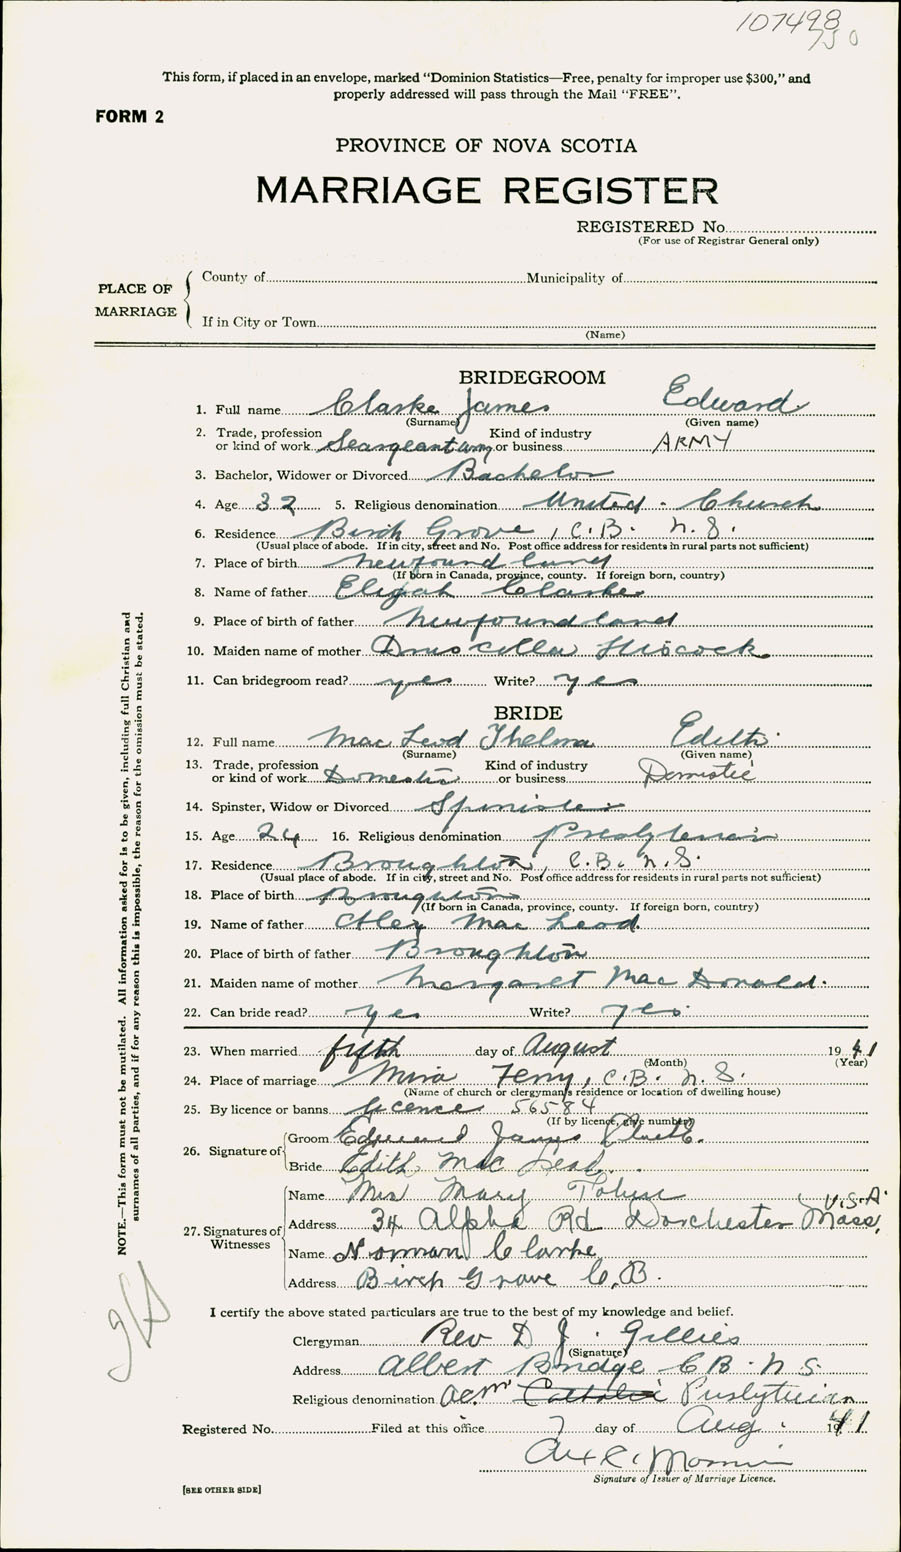 107498
750
This form, if placed in an envelope, marked “Dominion Statistics—Free, penalty for improper use $300,” and
properly addressed will pass through the Mail “FREE”.
FORM 2
PROVINCE OF NOVA SCOTIA
MARRIAGE REGISTER
REGISTERED No.
(For use of Registrar General only)
PLACE OF MARRIAGE
County of Municipality of
If in City or Town
(Name)
BRIDEGROOM
1. Full name Clarke James Edward
(Surname) (Given name)
2. Trade, profession or kind of work Seargeant army Kind of industry or business ARMY
3. Bachelor, Widower or Divorced Bachelor
4. Age 32 5. Religious denomination United - Church
6. Residence Birch Grove, C.B. N.S.
(Usual place of abode. If in city, street and No. Post office address for residents in rural parts not sufficient)
7. Place of birth Newfoundland
(If born in Canada, province, county. If foreign born, country)
8. Name of father Elijah Clarke
9. Place of birth of father Newfoundland
10. Maiden name of mother Druscilla Hiscock
11. Can bridegroom read? yes Write? yes
BRIDE
12. Full name Mac Leod Thelma Edith
(Surname) (Given name)
13. Trade, profession or kind of work Domestic Kind of industry or business Domestic
14. Spinster, Widow or Divorced Spinister
15. Age 24 16. Religious denomination Presbyterian
17. Residence Broughton, C.B. N.S.
(Usual place of abode. If in city, street and No. Post office address for residents in rural parts not sufficient)
18. Place of birth Broughton
(If born in Canada, province, county. If foreign born, country)
19. Name of father Mac Leod
20. Place of birth of father Broughton
21. Maiden name of mother Margaret Mac Donald.
22. Can bride read? yes Write? yes.
23. When married fifth day of August 1941
(Month) (Year)
24. Place of marriage Mira Ferry, C.B. N.S.
(Name of church or clergyman's residence or location of dwelling house)
25. By licence or banns licence 56584
(If by licence, give number)
26. Signature of
Groom Edward James
Bride Edith Mac Leod.
27. Signatures of Witnesses
Name Mrs Mary
U.S.A.
Address 34 Alpha Rd Dorchester Mass,
Name Norman Clarke
Address Birch Grove C.B.
I certify the above stated particulars are true to the best of my knowledge and belief.
Clergyman Rev D J. Gillies
(Signature)
Address Albert Bridge C B. N S.
Religious denomination Catholic Presbyterian
Registered No. Filed at this office 7 day of Aug. 1941
Signature of Issuer of Marriage Licence.
[SEE OTHER SIDE]
NOTE.—This form must not be mutilated. All information asked for is to be given, including full Christian and
surnames of all parties, and if for any reason this is impossible, the reason for the omission must be stated.